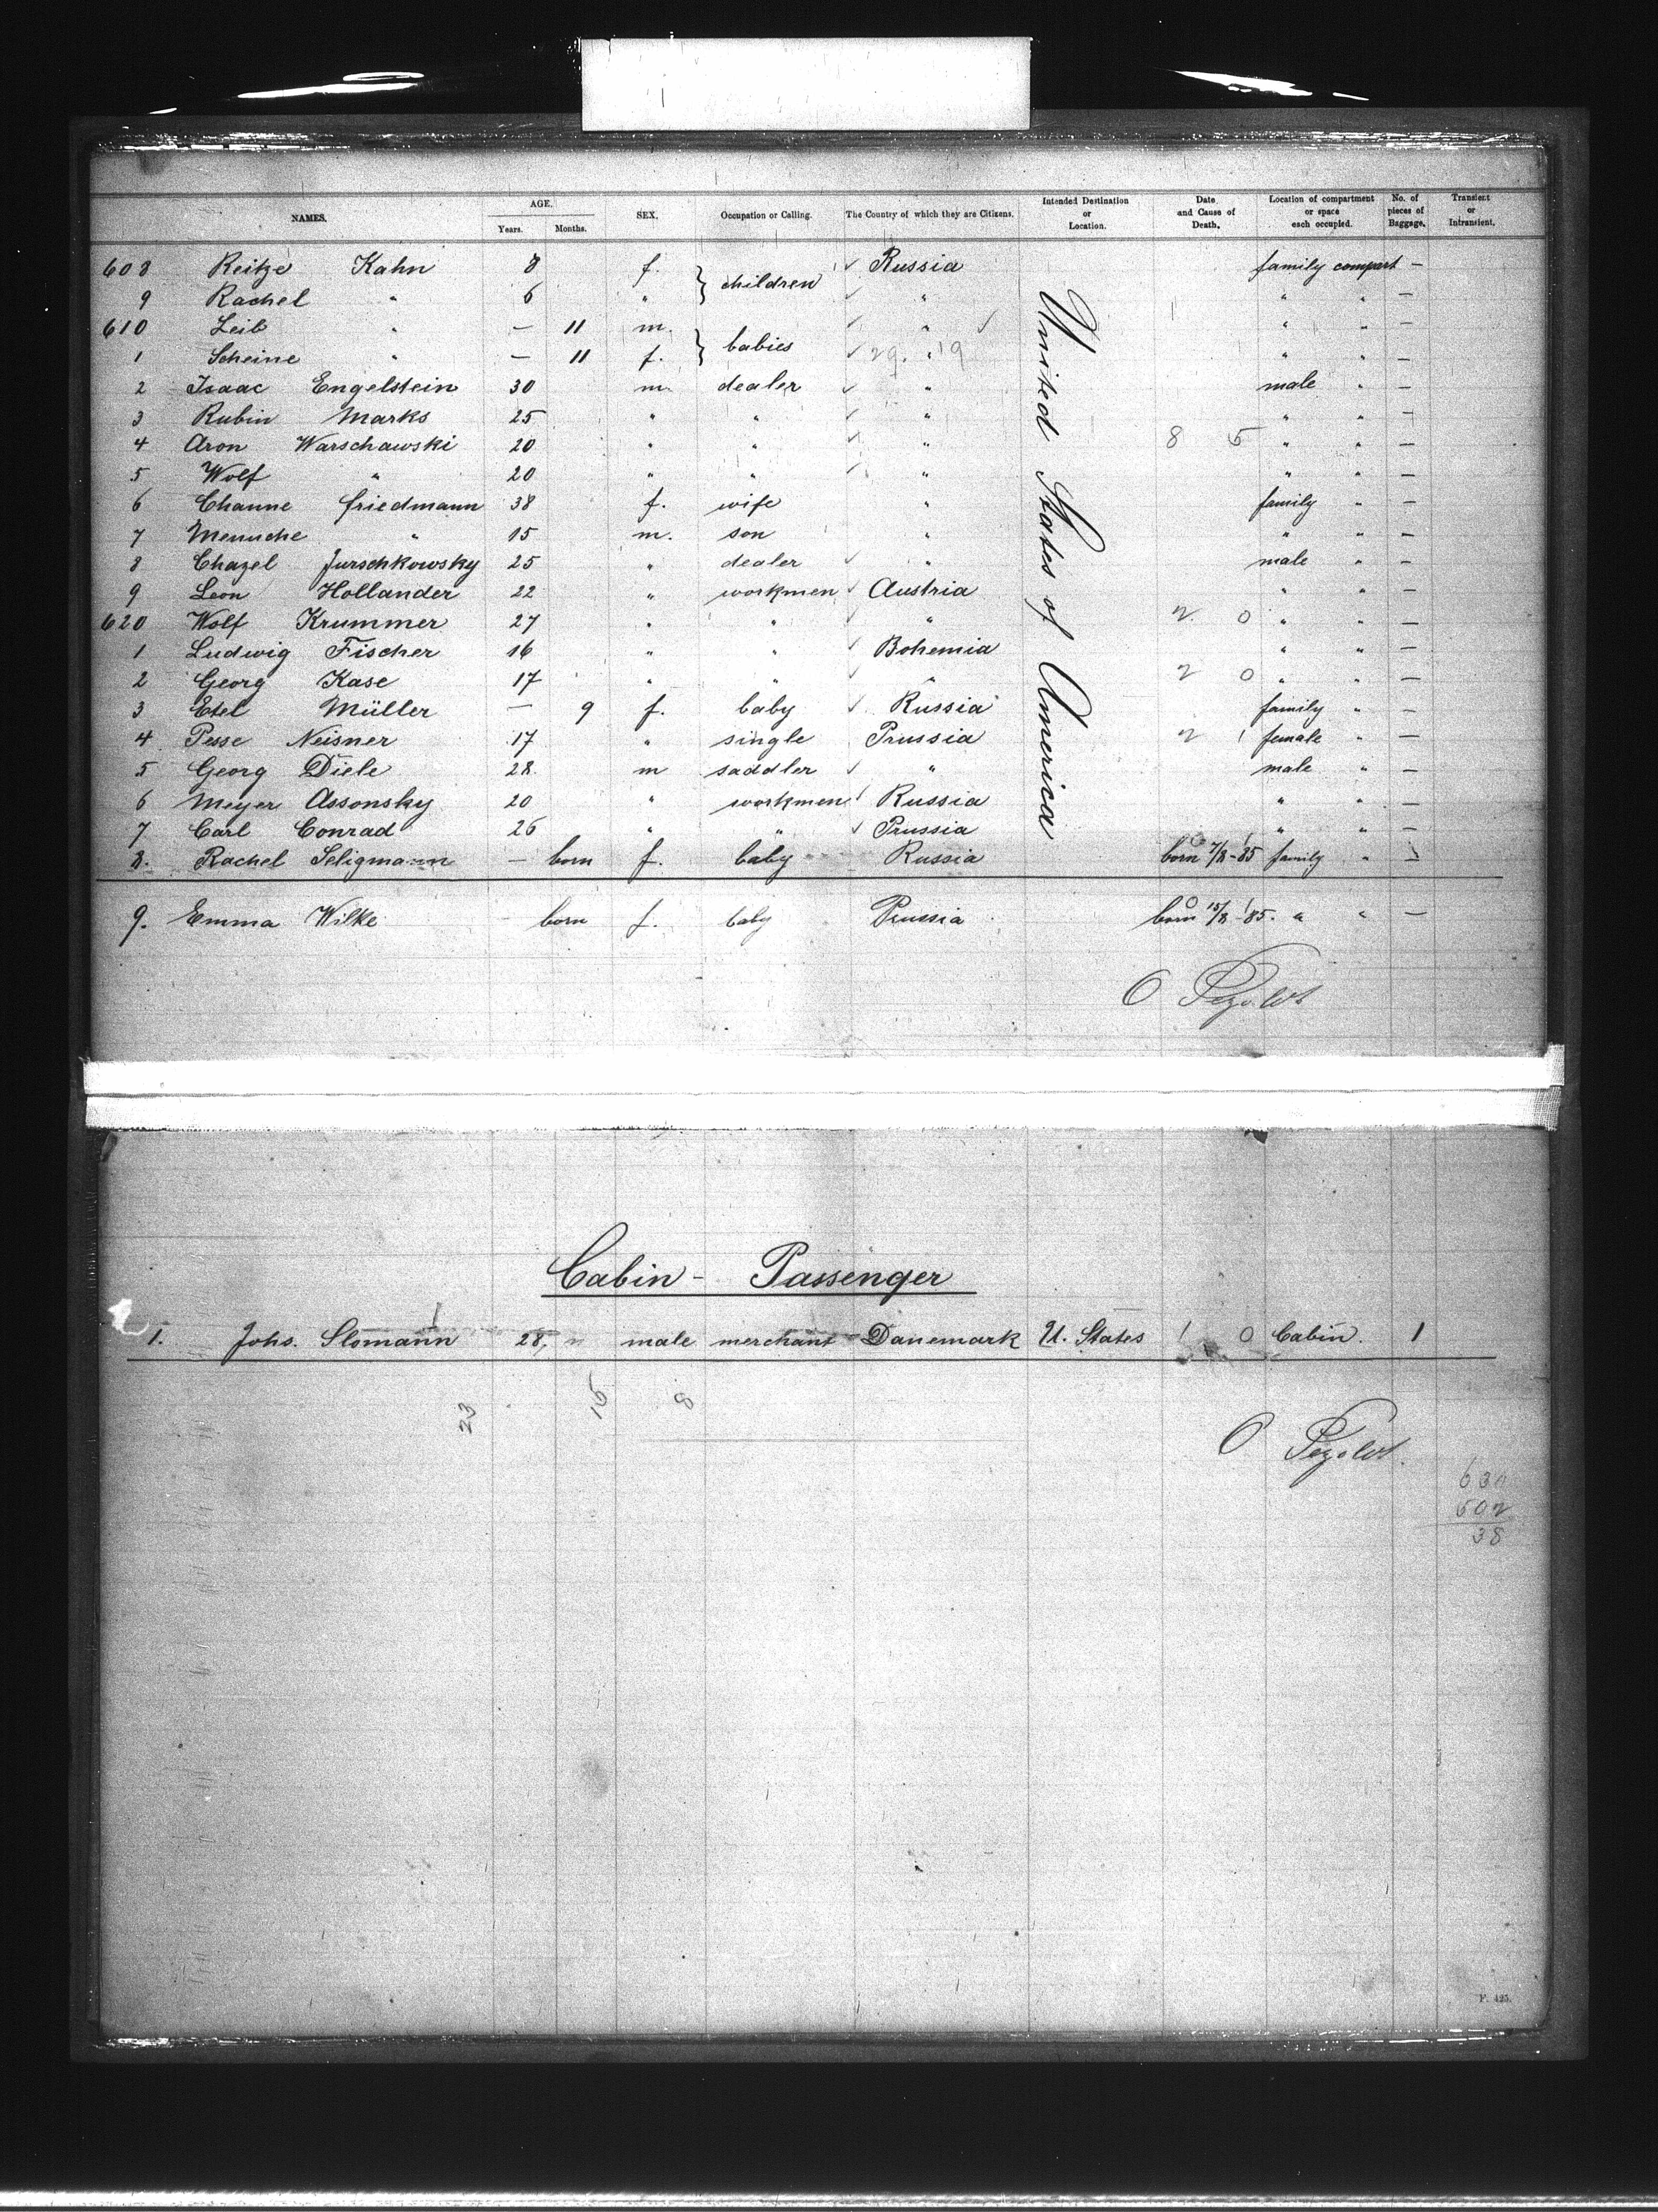 NAMES. AGE. Years. Months. SEX. Occupation or Calling. The Country of which they are Citizens. Intended Destination or Location. Date and Cause of Death. Location of compartment or space each occupied. No. of pieces of Baggage. Transient or Intransient.
608 Reitze Kahn 8 f. } children ✓ Russia family compart —
9 Rachel " 6 " ✓ " " " —
610 Leib " — 11 m. } babies ✓ " ✓ " " —
1 Scheine " — 11 f. ✓ 29. " 19 " " —
2 Isaac Engelstein 30 m. dealer ✓ " male " —
3 Rubin Marks 25 " " ✓ " " " —
4 Aron Warschawski 20 " " ✓ " 8 5 " " —
5 Wolf " 20 " " ✓ " " " —
6 Channe Friedmann 38 f. wife " family " —
7 Menuche " 15 m. son " " " —
8 Chazel Jurschkowsky 25 " dealer ✓ " male " —
9 Leon Hollander 22 " workmen ✓ Austria " " —
620 Wolf Krummer 27 " " ✓ " 2 0 " " —
1 Ludwig Fischer 16 " " ✓ Bohemia " " —
2 Georg Kase 17 " " ✓ " 2 0 " " —
3 Etel Müller — 9 f. baby ✓ Russia family " —
4 Pesse Neisner 17 " single Prussia 2 1 female " —
5 Georg Diele 28 m saddler ✓ " male " —
6 Meyer Assonsky 20 " workmen Russia " " —
7 Carl Conrad 26 " " ✓ Prussia " " —
8. Rachel Seligmann — born f. baby Russia born 7/8-85 family " —
United States of America
9. Emma Wilke — born f. baby Prussia born 15/8-85. " " —
Cabin - Passenger
1. Johs. Slomann 28, male merchant Danemark U. States 1 0 Cabin. 1
23 15 8
502
38
P. 425.